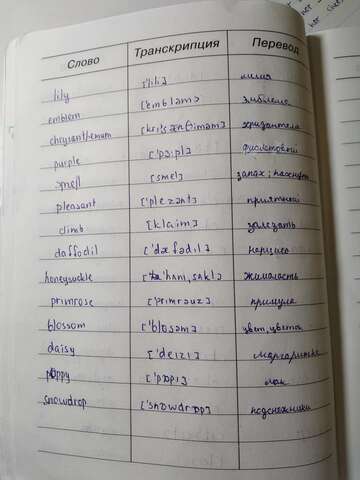 Слово Транскрипция Перевод
lily ['lili] лилия
emblem ['embləm] эмблема
chrysanthemum хризантема
purple ['pə:pl] фиолетовый
smell [smel] запах;
pleasant ['pleznt] приятный
climb [klaim] залезать
daffodil ['dæfədil] нарцисс
honeysuckle жимолость
primrose ['primrəuz] примула
blossom ['blɒsəm] цвет, цветок
daisy ['deizi] маргаритка
poppy ['pɒpi] мак
snowdrop ['snəwdrɒp] подснежники